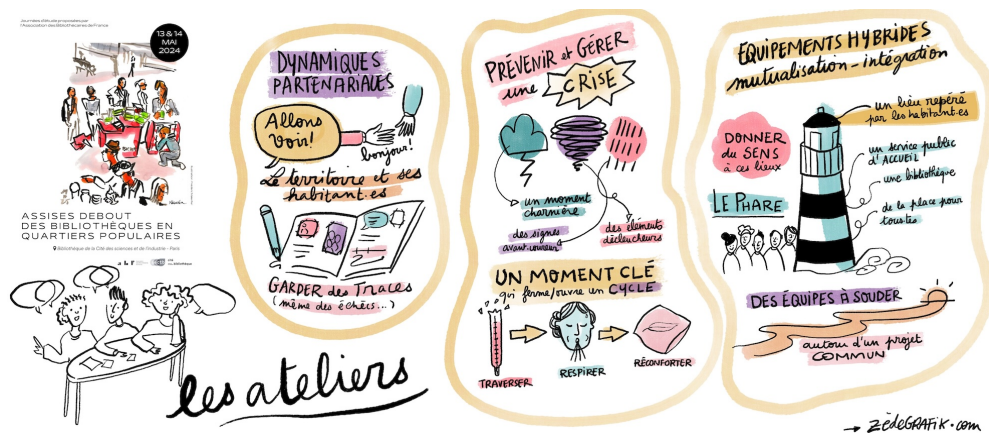 Journées d'étude proposées par
l'Association des Bibliothécaires de France
13 & 14
MAI
2024
ASSISES DEBOUT
DES BIBLIOTHÈQUES EN
QUARTIERS POPULAIRES
Bibliothèque de la Cité des sciences et de l'industrie - Paris
abf
les ateliers
DYNAMIQUES
PARTENARIALES
Allons
voir!
bonjour!
Le territoire et ses
habitant.es
GARDER des TRACES
(même des échecs...)
PRÉVENIR et GÉRER
une CRISE
un moment
charnière
des signes
avant-coureur
des élément
déclencheurs
UN MOMENT CLÉ
qui ferme/ouvre un CYCLE
TRAVERSER
RESPIRER
RÉCONFORTER
ÉQUIPEMENTS HYBRIDES
mutualisation-intégration
DONNER
du SENS
à ces lieux
LE PHARE
un lieu repéré
par les habitant.es
un service public
d'ACCUEIL
une bibliothèque
de la place pour
tous·tes
DES ÉQUIPES À SOUDER
autour d'un projet
COMMUN
→ ZèdeGRAFIK.com